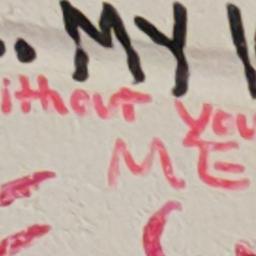 .. MY
ithout you
ME